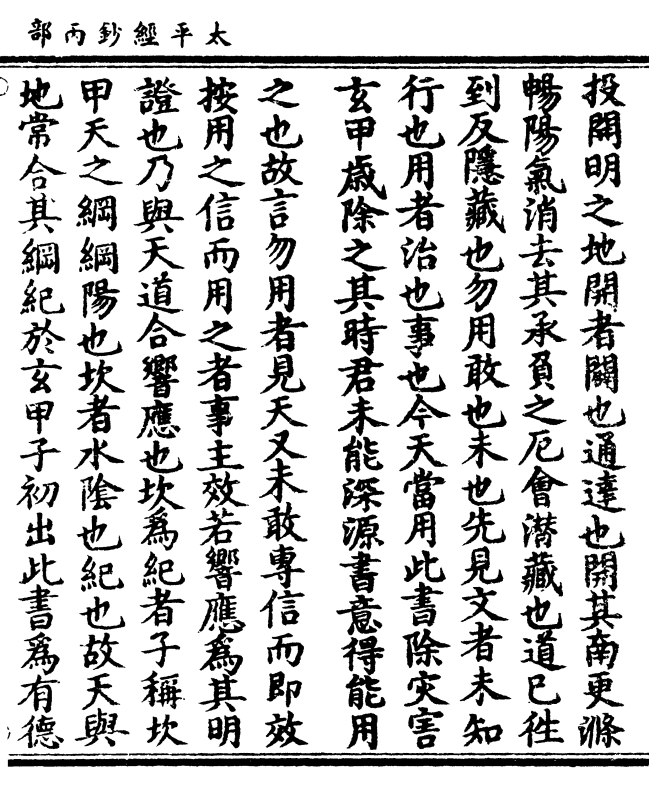 太平經鈔丙部
投開明之地開者闢也通達也開其南更滌
暢陽氣消去其承負之厄會潜藏也道已徃
到反隱藏也勿用敢也未也先見文者未知
行也用者治也事也今天當用此書除灾害
玄甲歲除之其時君未能深源書意得能用
之也故言勿用者見天又未敢專信而即效
按用之信而用之者事主效若響應爲其明
證也乃與天道合響應也坎爲紀者子稱坎
甲天之綱綱陽也坎者水隂也紀也故天與
地常合其綱紀於玄甲子初出此書爲有德